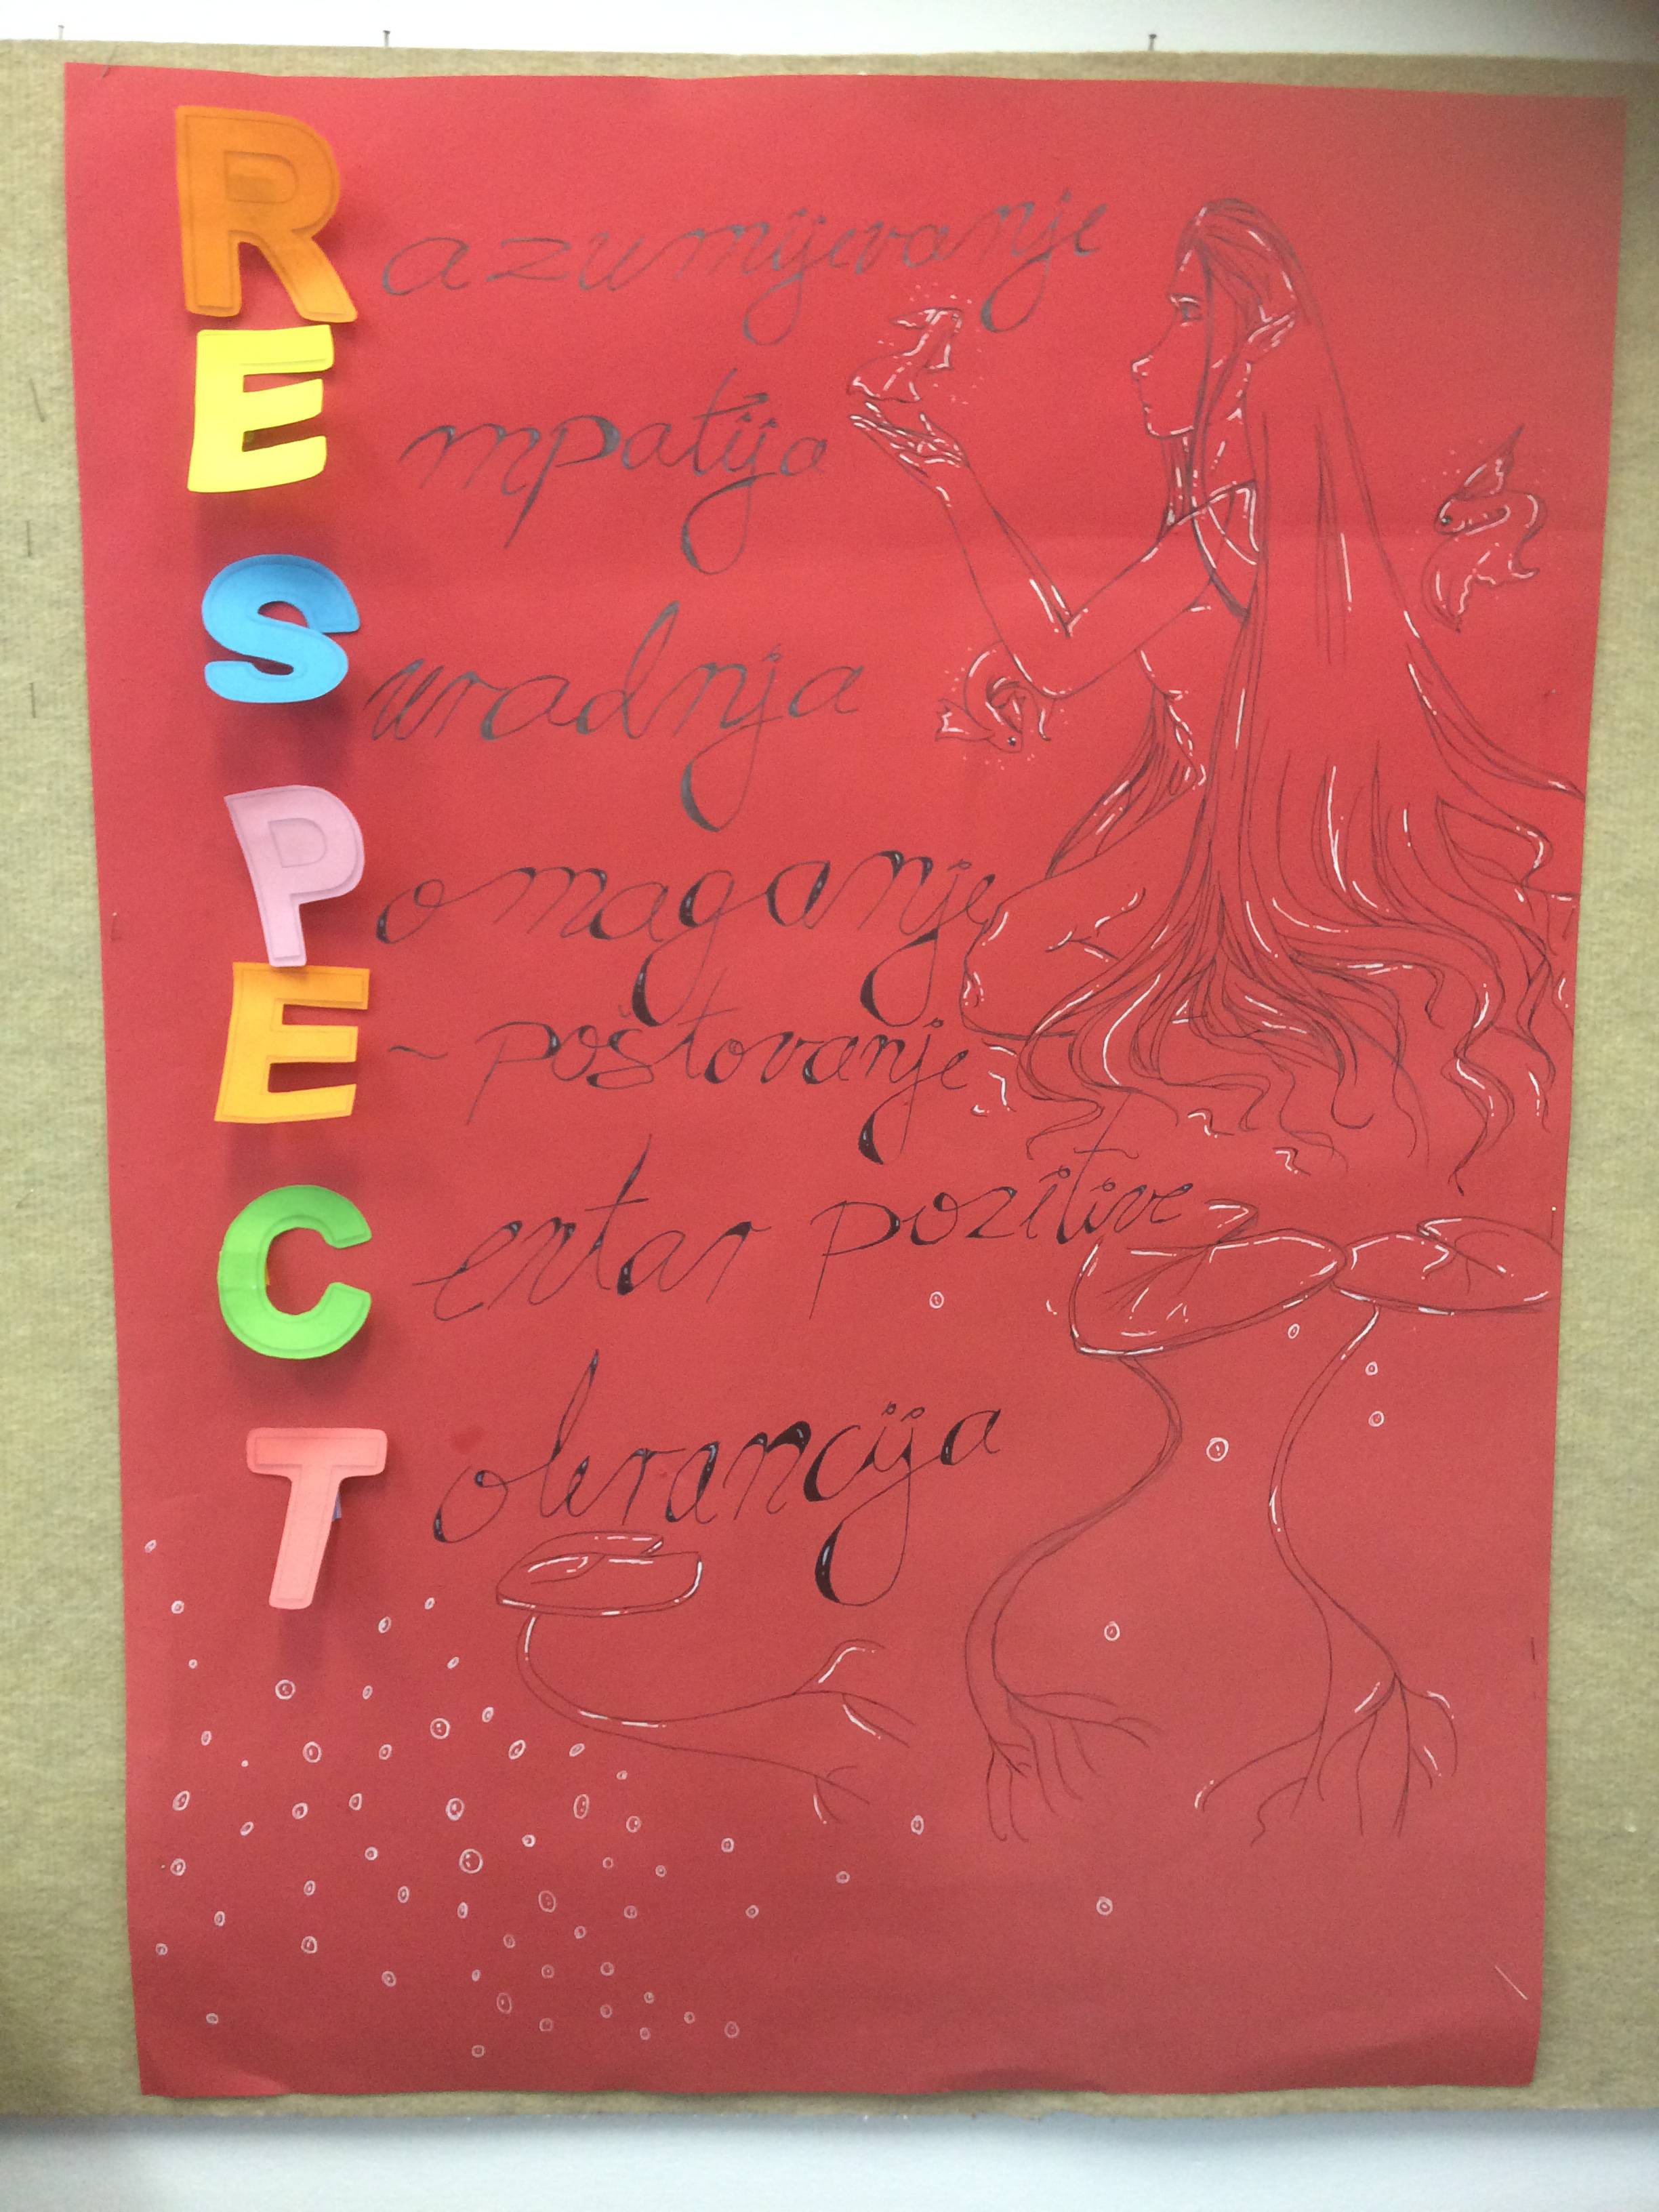 Razumijevanje
Empatija
Suradnja
Pomaganje
E ~ poštovanje
Centar pozitive
Tolerancija